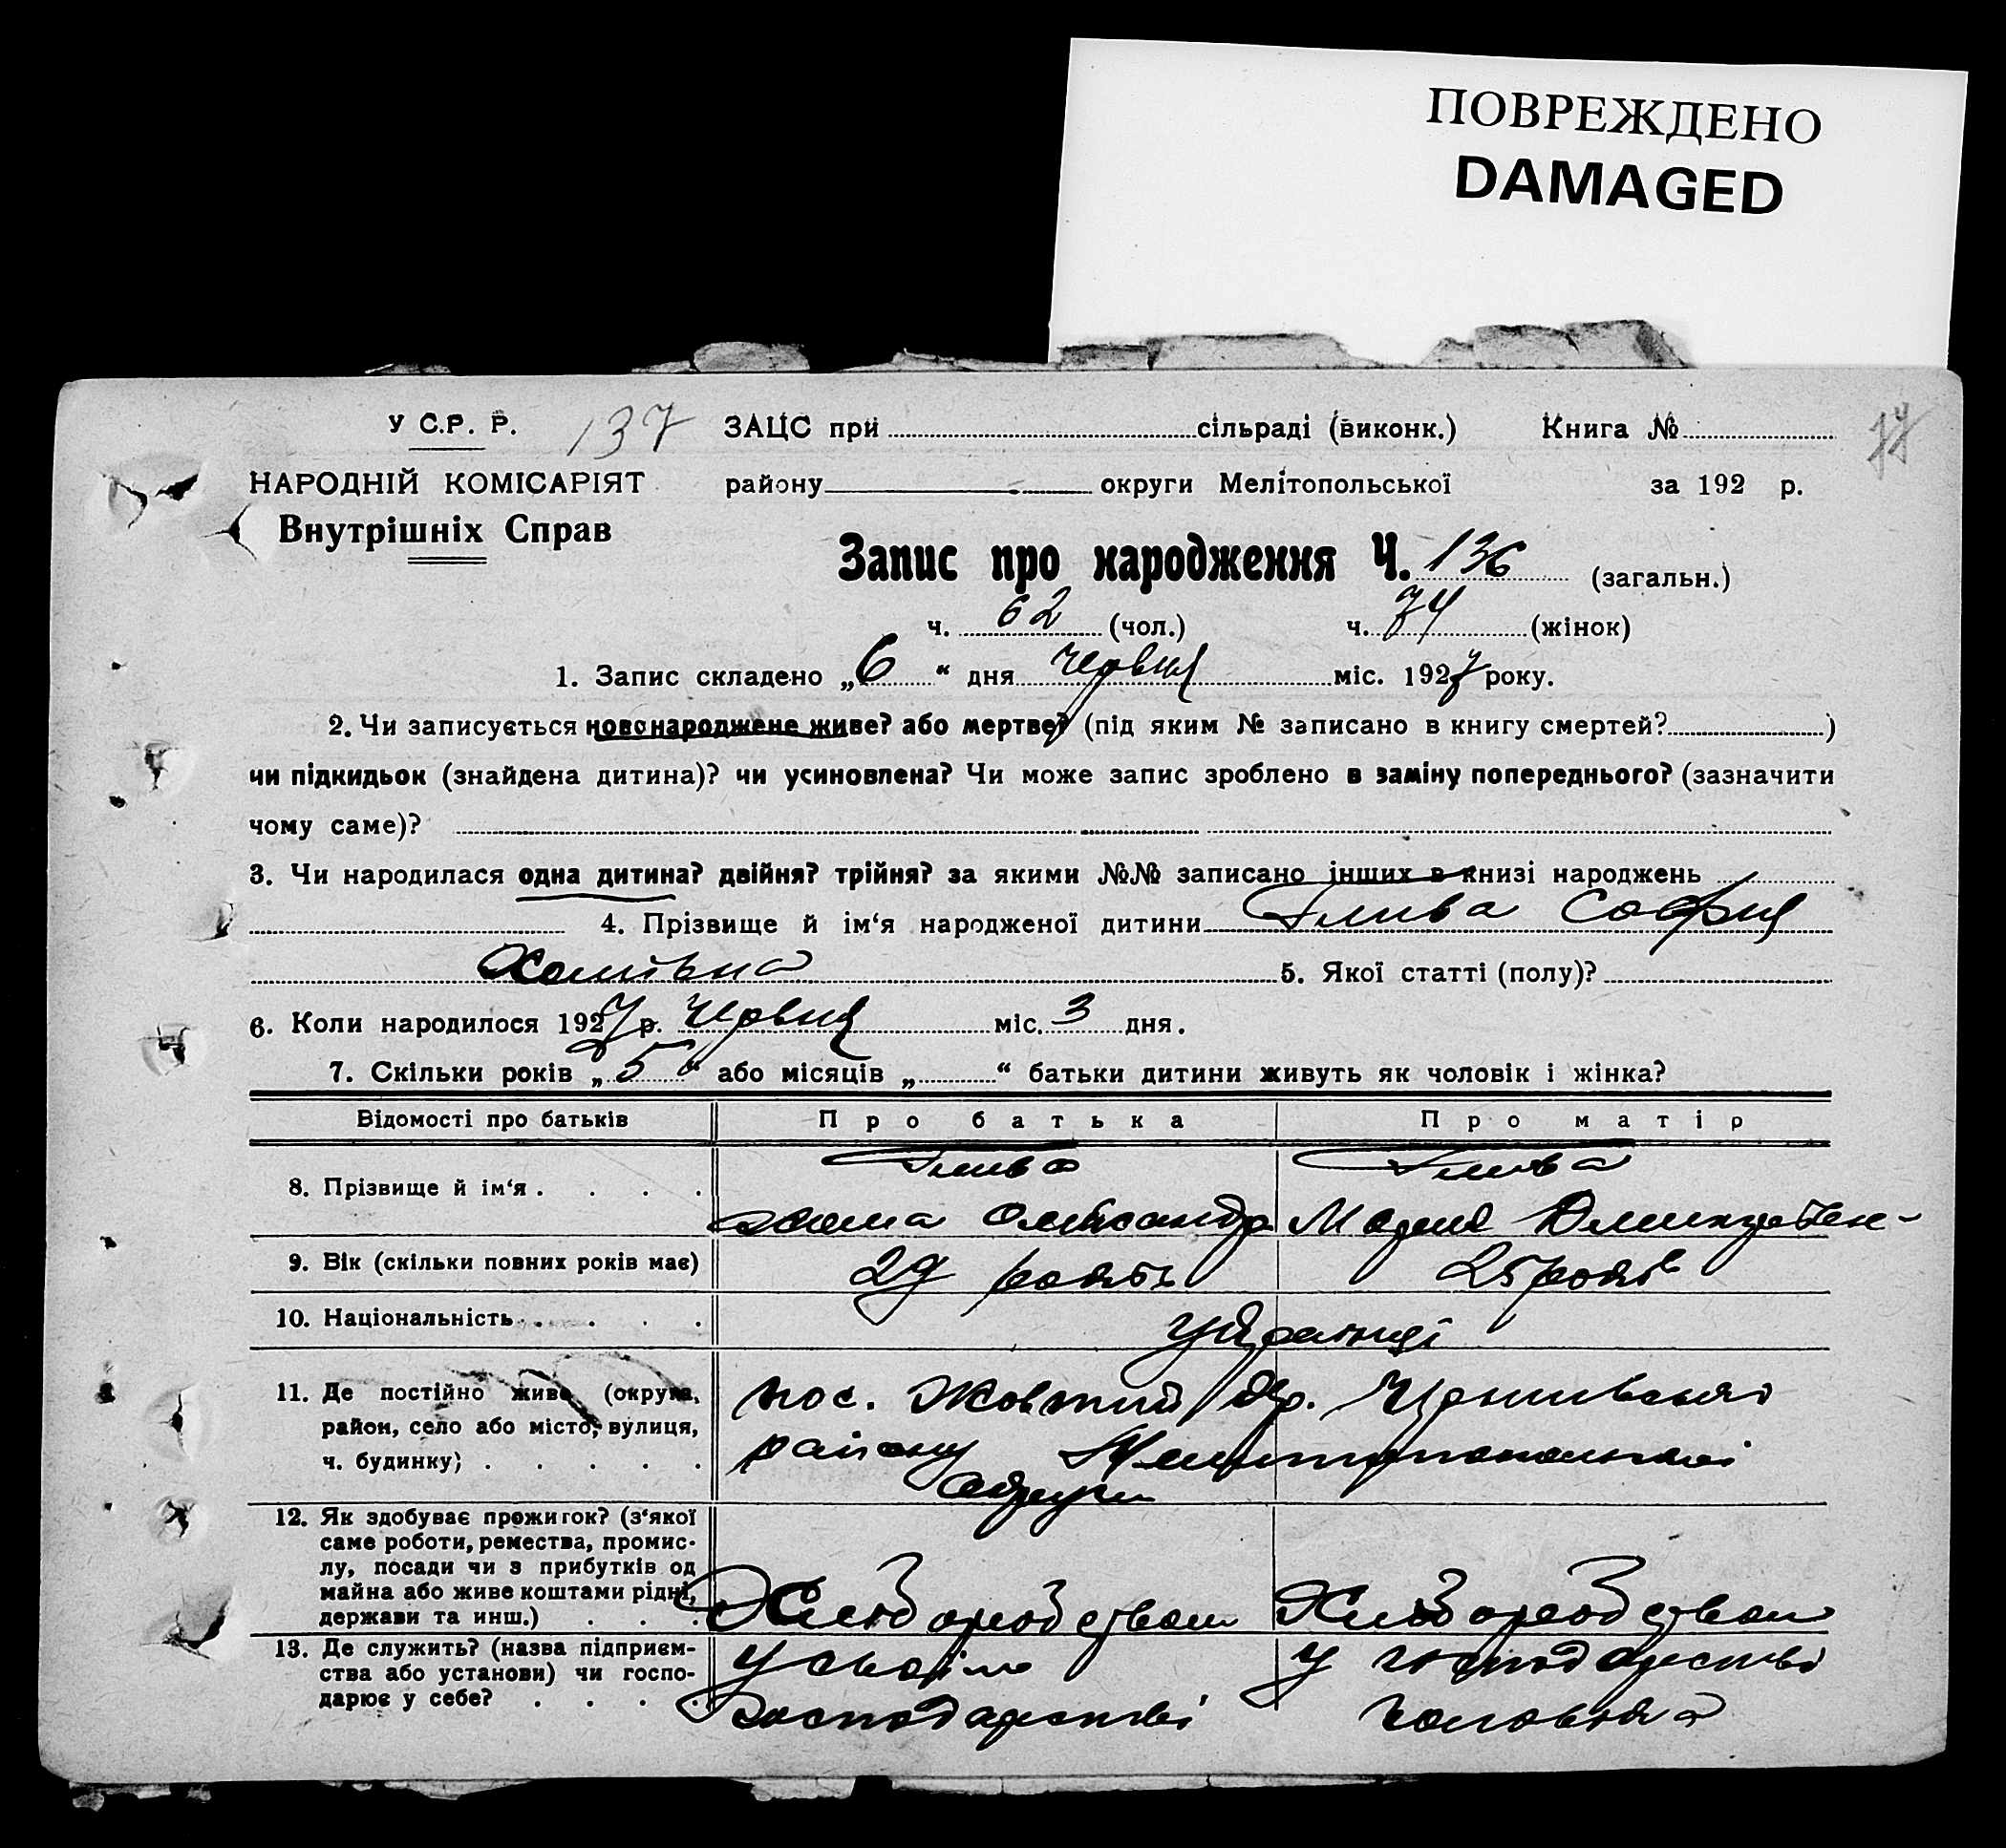 ПОВРЕЖДЕНО
DAMAGED
У С.Р. Р. 137 ЗАЦС при сільраді (виконк.) Книга № 77
НАРОДНІЙ КОМІСАРІЯТ району округи Мелітопольської за 192 р.
Внутрішніх Справ
Запис про народження Ч. 136 (загальн.)
ч. 62 (чол.) ч. 74 (жінок)
1. Запис складено „6“ дня червня міс. 1927 року.
2. Чи записується новонароджене живе? або мертве? (під яким № записано в книгу смертей? )
чи підкидьок (знайдена дитина)? чи усиновлена? Чи може запис зроблено в заміну попереднього? (зазначити
чому саме)?
3. Чи народилася одна дитина? двійня? трійня? за якими №№ записано інших в книзі народжень
4. Прізвище й ім‘я народженої дитини Глива Софія
Хомівна 5. Якої статті (полу)?
6. Коли народилося 1927 р. червня міс. 3 дня.
7. Скільки років „5“ або місяців „ “ батьки дитини живуть як чоловік і жінка?
Відомості про батьків Про батька Про матір
8. Прізвище й ім‘я . . . . Глива Глива
Хома Олександр Мария
9. Вік (скільки повних років має) 29 років 25 років
10. Національність . . . . Українці
11. Де постійно живе (округа, пос. Жовтий
район, село або місто, вулиця, району Мелітопольської
ч. будинку) . . . . . округи
12. Як здобуває прожиток? (з‘якої
саме роботи, ремества, промис-
лу, посади чи з прибутків од
майна або живе коштами рідні,
держави та инш.) . . . Хлеборобством Хлеборобством
13. Де служить? (назва підприєм- у своїм у господарстві
ства або установи) чи госпо-
дарює у себе? . . . . господарстві чоловіка